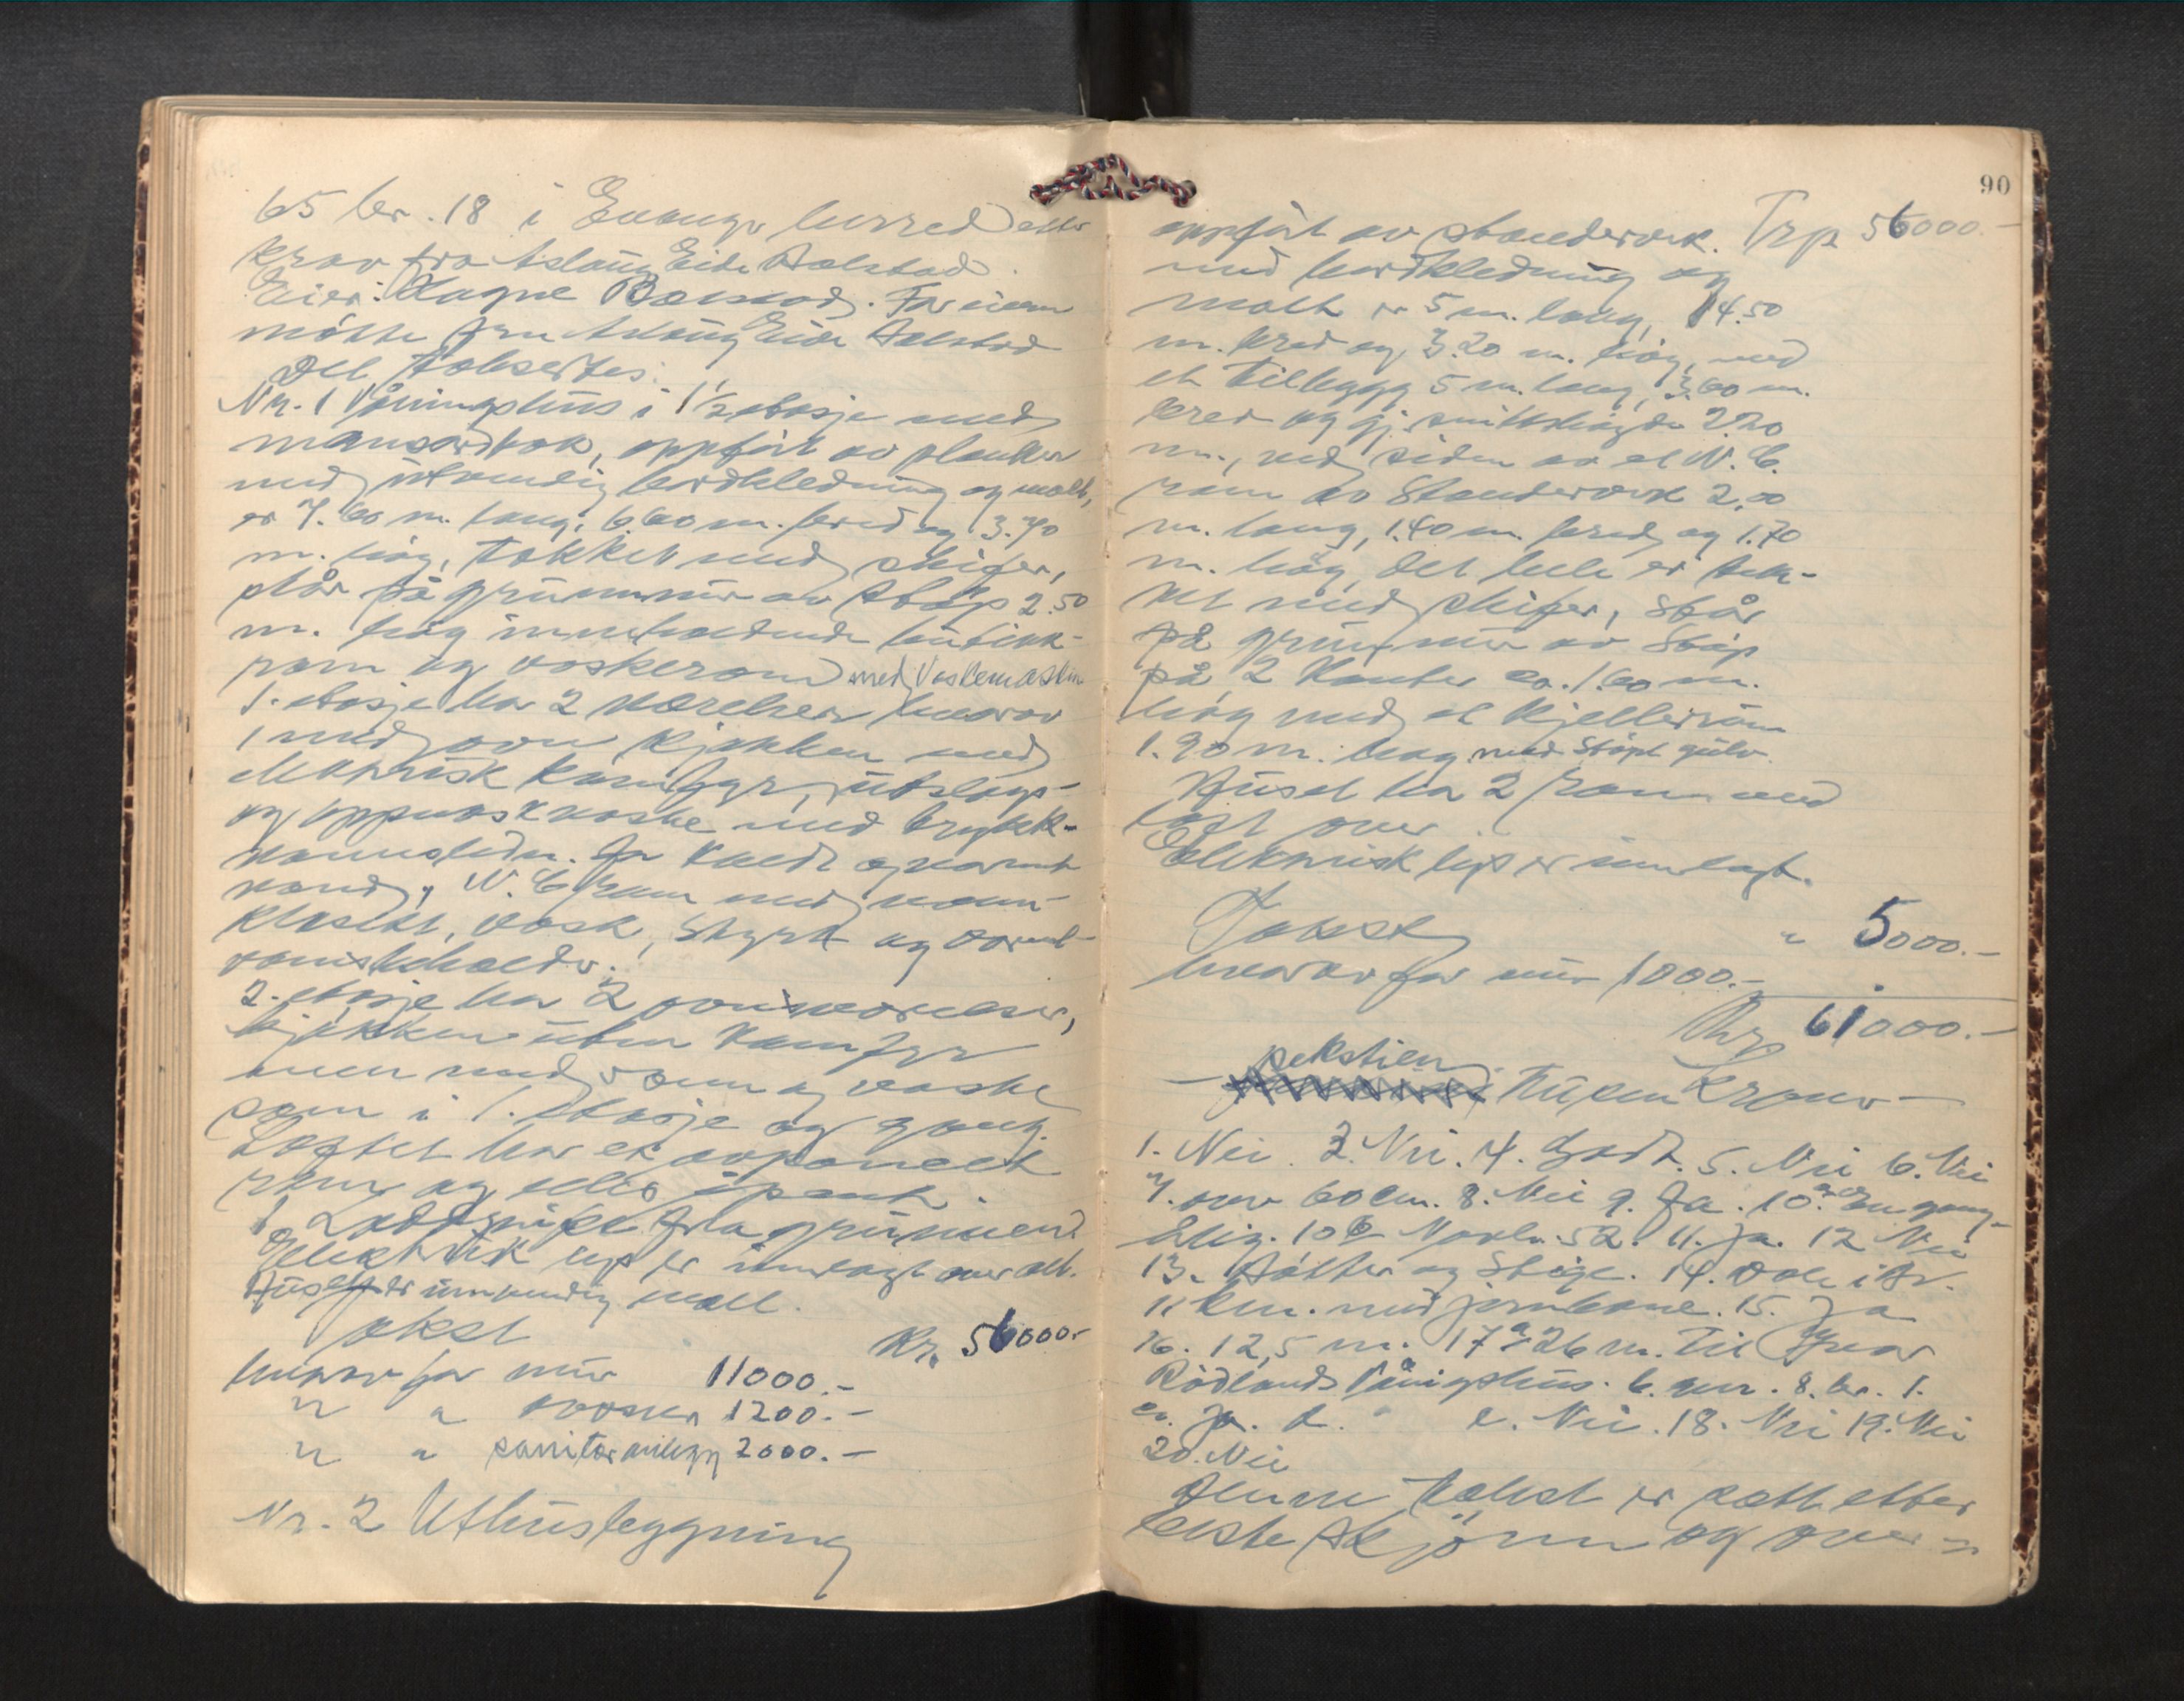 65 br. 18 i Evanger herred etter
krav fra Aslaug Eide Bolstad.
Eier: Magne Bolstad. For eieren
møtte fru Aslaug Eide Bolstad
Det takseres:
Nr. 1 Våningshus i 1½ etasje med
mansardtak, oppført av planker
med utvendig bordkledning og malt,
er 7.60 m. lang, 6.60 m. bred og 3.70
m. høg, takket med skifer,
står på grunnmur av støp 2.50
m. høg inneholdende butikk-
rom og vaskerom med Vaskemaskin
1. etasje har 2 værelser hvorav
1 med ovn kjøkken med
elektrisk komfyr, utslags-
og oppvaskvaske med trykk-
vannsledn. for kaldt og varmt
vand, W.C. rom med vann-
klosett, vask, Skyll og varmt-
vannsbeholder.
2. etasje har 2 ovnsværelser,
kjøkken uten komfyr
men med vann og vaske
som i 1. etasje og gang.
Loftet har et avpanelt
rom og ellers åpent.
1 Loddpipe fra grunnen
Elektrisk lys er innlagt over alt.
Huset er innvendig malt.
Takst Kr. 56000.-
hvorav for mur 11000.-
" " ovnsrør 1200.-
" " sanitæranlegg 2000.-
Nr. 2 Uthusbygning
90
oppført av standerverk. Trp 56000.-
med bordkledning og
malt er 5 m. lang, 4.50
m. bred og 3.20 m. høg, med
et tilbygg 5 m. lang, 3.60 m.
bred og gj. snittshøgde 2.20
m., ved siden av et W.C.
rom av Standerverk 2,00
m. lang, 1.40 m. bred og 1.70
m. høg, det hele er tek-
ket med skifer, Står
på grunnmur av Støp
på 2 Kanter ca. 1.60 m.
høg med et Kjellerrum
1.90 m. høg med Støpt gulv.
Huset har 2 rom med
loft over.
Elektrisk lys er innlagt.
Takst " 5000.-
hvorav for mur 1000.-
Kr. 61000.-
sekstien
— Tusen Kroner —
1. Nei. 3. Nei. 4. Godt. 5. Nei 6. Nei
7. over 60 cm. 8. Nei 9. Ja. 10a. En gang
årlig. 10b Novbr. 52. 11. Ja. 12 Nei
13. Bøtter og Stige. 14. Dale i Br.
11 km. med jernbane. 15. Ja
16. 12,5 m. 17a 26 m. til Ivar
Rødlands Våningshus. b. gnr. 8. br. 1.
c. Ja. d. " e. Nei. 18. Nei 19. Nei
20. Nei
Denne takst er satt etter
beste skjønn og over-